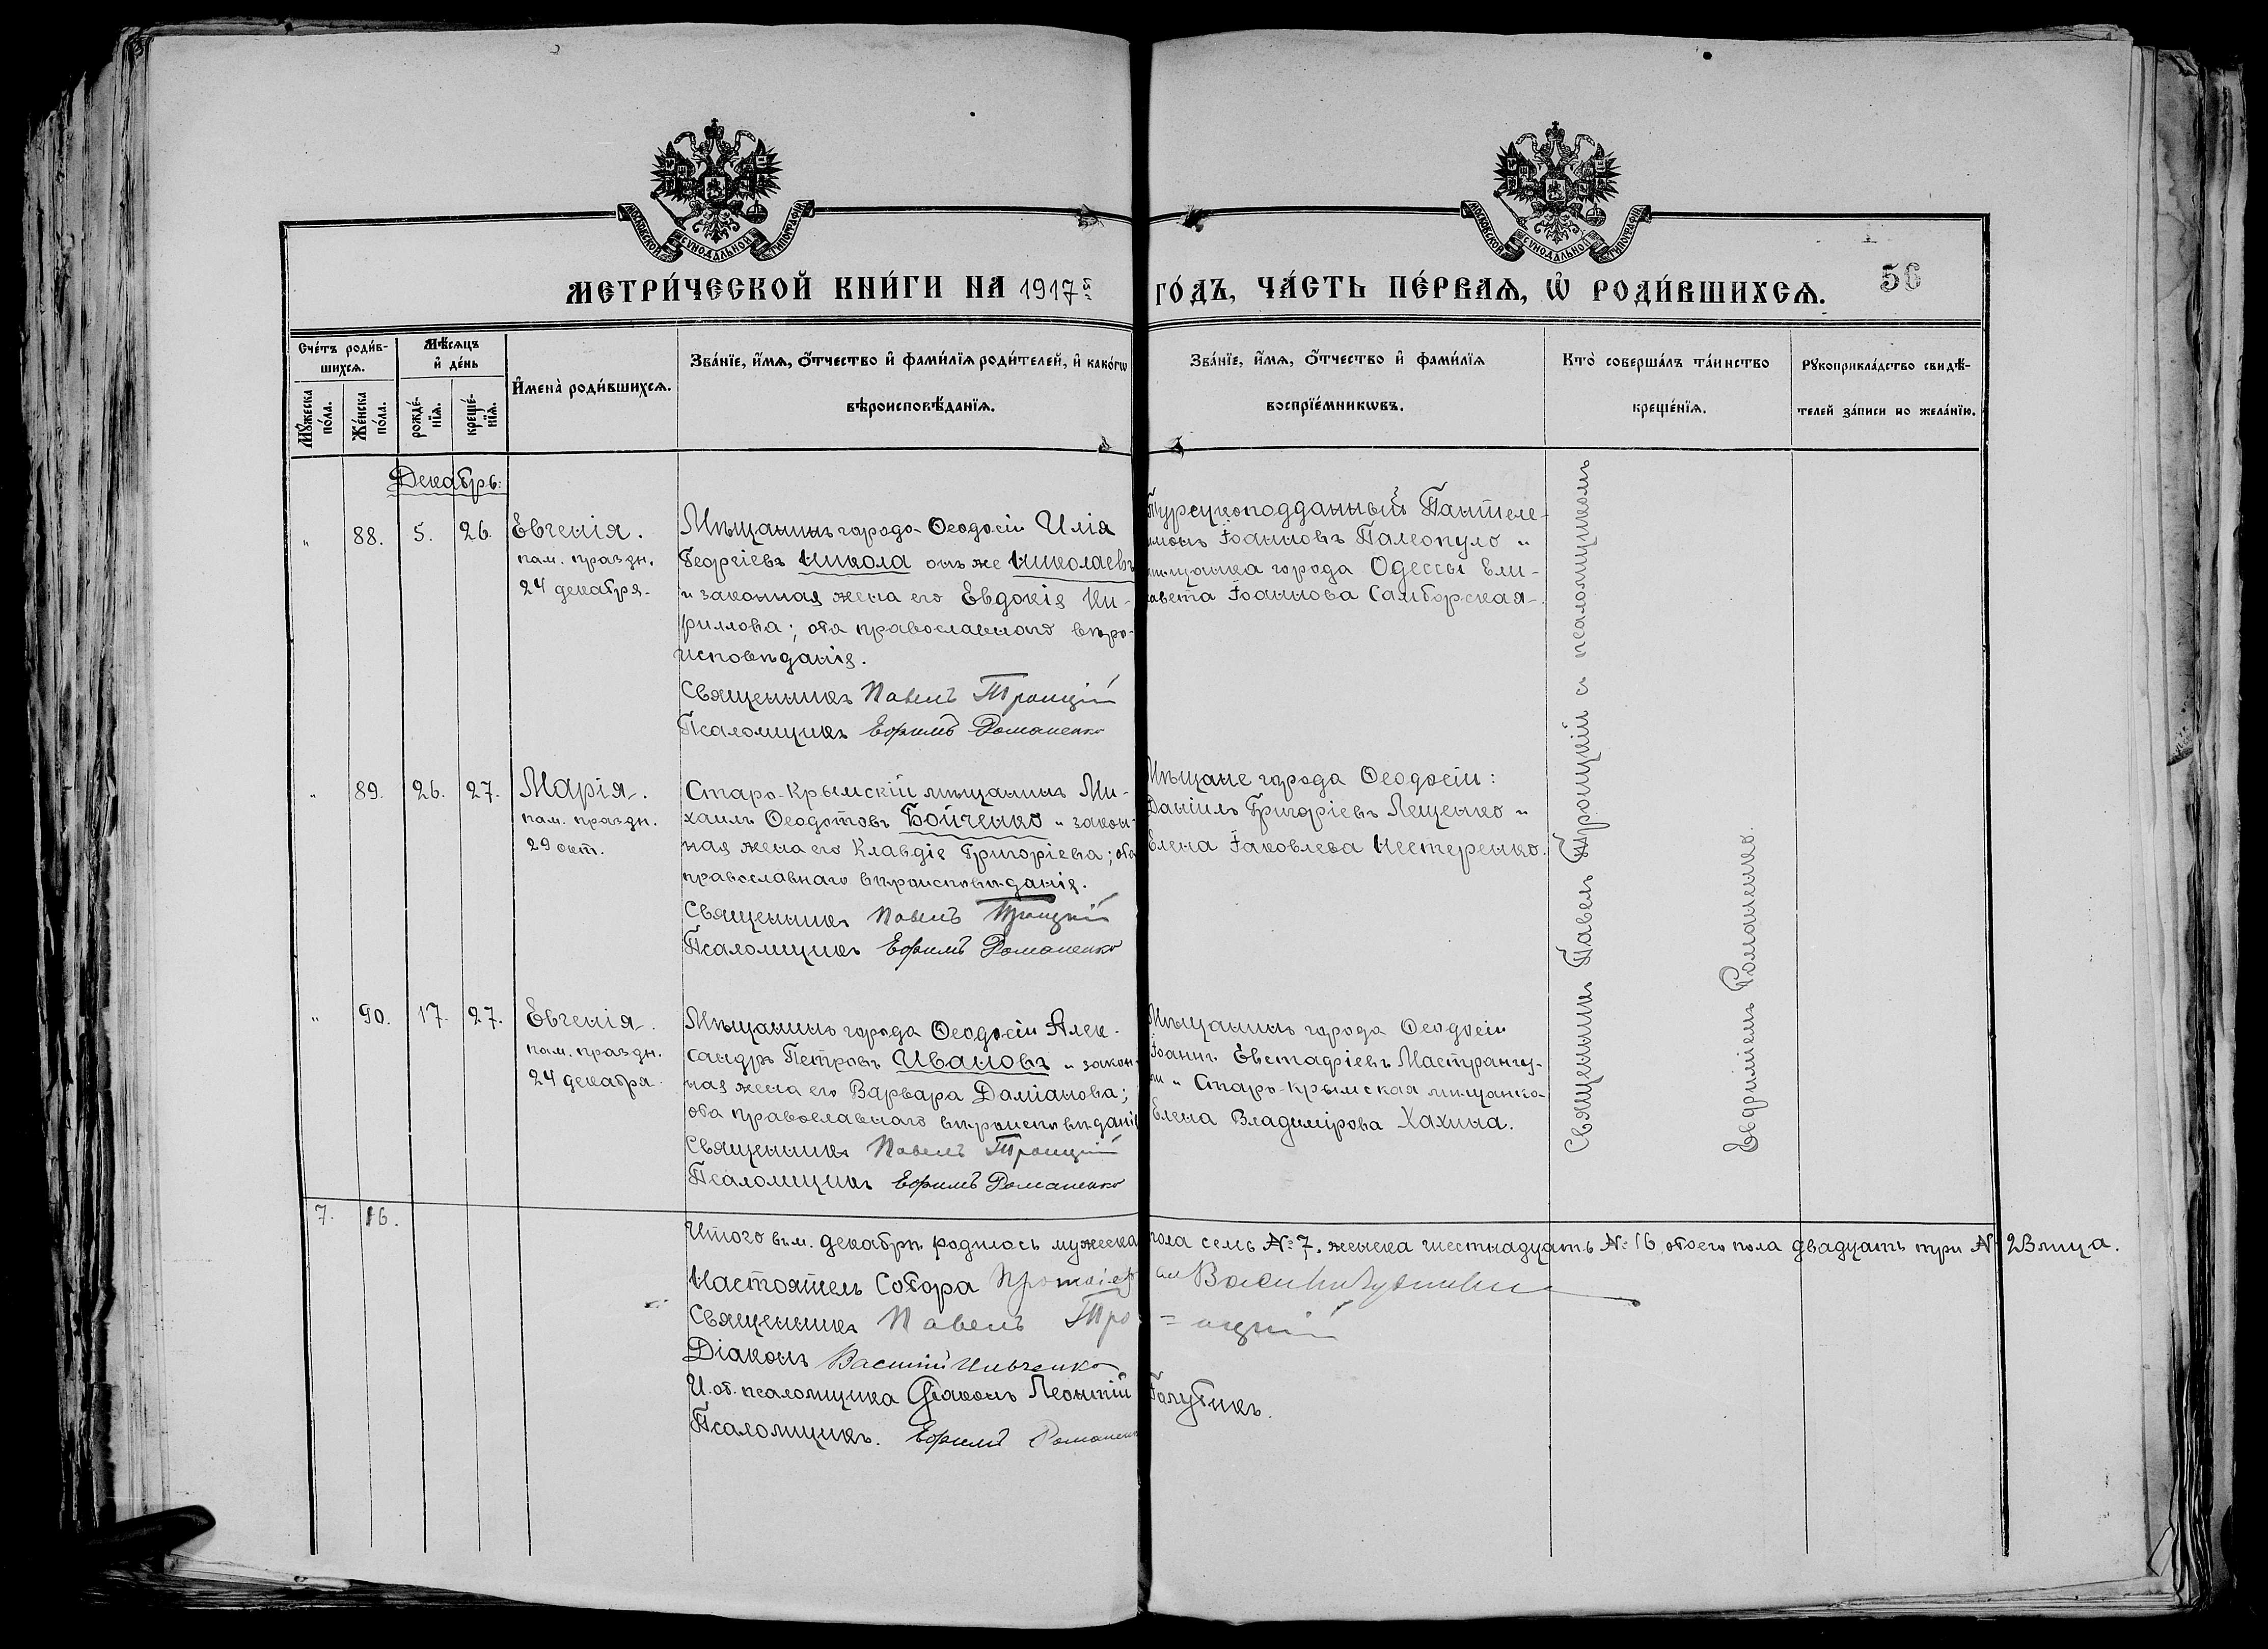 МОСКОВСКОЙ СΥНОДАЛЬНОЙ ТИПОГРАФІИ
МОСКОВСКОЙ СΥНОДАЛЬНОЙ ТИПОГРАФІИ
МЕТРИ́ЧЕСКОЙ КНИ́ГИ НА 1917й ГО́ДЪ, ЧА́СТЬ ПЕ́РВАЯ, Ѡ РОДИ́ВШИХСЯ. 56
Сче́тъ роди́в-
шихся.
Му́жеска по́ла.
Же́нска по́ла.
Мѣ́сяцъ
и де́нь
рожде́-
нїя.
креще́-
нїя.
Имена̀ роди́вшихся.
Зва́нїе, и́мя, о́тчество и фами́лїя роди́телей, и како́гѡ
вѣроисповѣ́данїя.
Зва́нїе, и́мя, о́тчество и фами́лїя
воспрїе́мникѡвъ.
Кто̀ соверша́лъ та́инство
креще́нїя.
Рукоприкла́дство свидѣ́-
телей за́писи по жела́нїю.
Декабрь.
" 88. 5. 26. Евгенія.
пам. праздн.
24 декабря.
Мѣщанинъ города Ѳеодосіи Илія
Георгіевъ Никола онъ же Николаевъ
и законная жена его Евдокія Ки-
риллова; оба православнаго вѣро-
исповѣданія.
Священникъ Павелъ Троицкій
Псаломщикъ Ефимъ Романенко
Турецкоподданный Пантеле-
имонъ Іоанновъ Палеопуло и
мѣщанка города Одессы Ели-
савета Іоаннова Самборская.
" 89. 26. 27. Марія.
пам. праздн.
29 окт.
Старо-Крымскій мѣщанинъ Ми-
хаилъ Ѳеодотовъ Бойченко и закон-
ная жена его Клавдія Григоріева; оба
православнаго вѣроисповѣданія.
Священникъ Павелъ Троицкій
Псаломщикъ Ефимъ Романенко
Мѣщане города Ѳеодосіи:
Даніилъ Григоріевъ Лещенко и
Елена Іаковлева Нестеренко.
" 90. 17. 27. Евгенія.
пам. праздн.
24 декабря.
Мѣщанинъ города Ѳеодосіи Алек-
сандръ Петровъ Ивановъ и закон-
ная жена его Варвара Даміанова;
оба православнаго вѣроисповѣданія
Священникъ Павелъ Троицкій
Псаломщикъ Ефимъ Романенко
Мѣщанинъ города Ѳеодосіи
Іоаннъ Евстафіевъ Мастрангу-
и Старо-Крымская мѣщанка
Елена Владимірова Хахина.
Священникъ Павелъ Троицкій съ псаломщикомъ
Евфиміемъ Романенко.
7. 16.
Итого въ м. декабрѣ родилось мужеска пола семь № 7. женска шестнадцать № 16, обоего пола двадцать три № 23 лица.
Настоятель Собора Протоіерей Василій
Священникъ Павелъ Тро=ицкій
Діаконъ Василій Ильченко
И. об. псаломщика Діаконъ Леонтій Голубикъ.
Псаломщикъ. Ефимъ Романенко